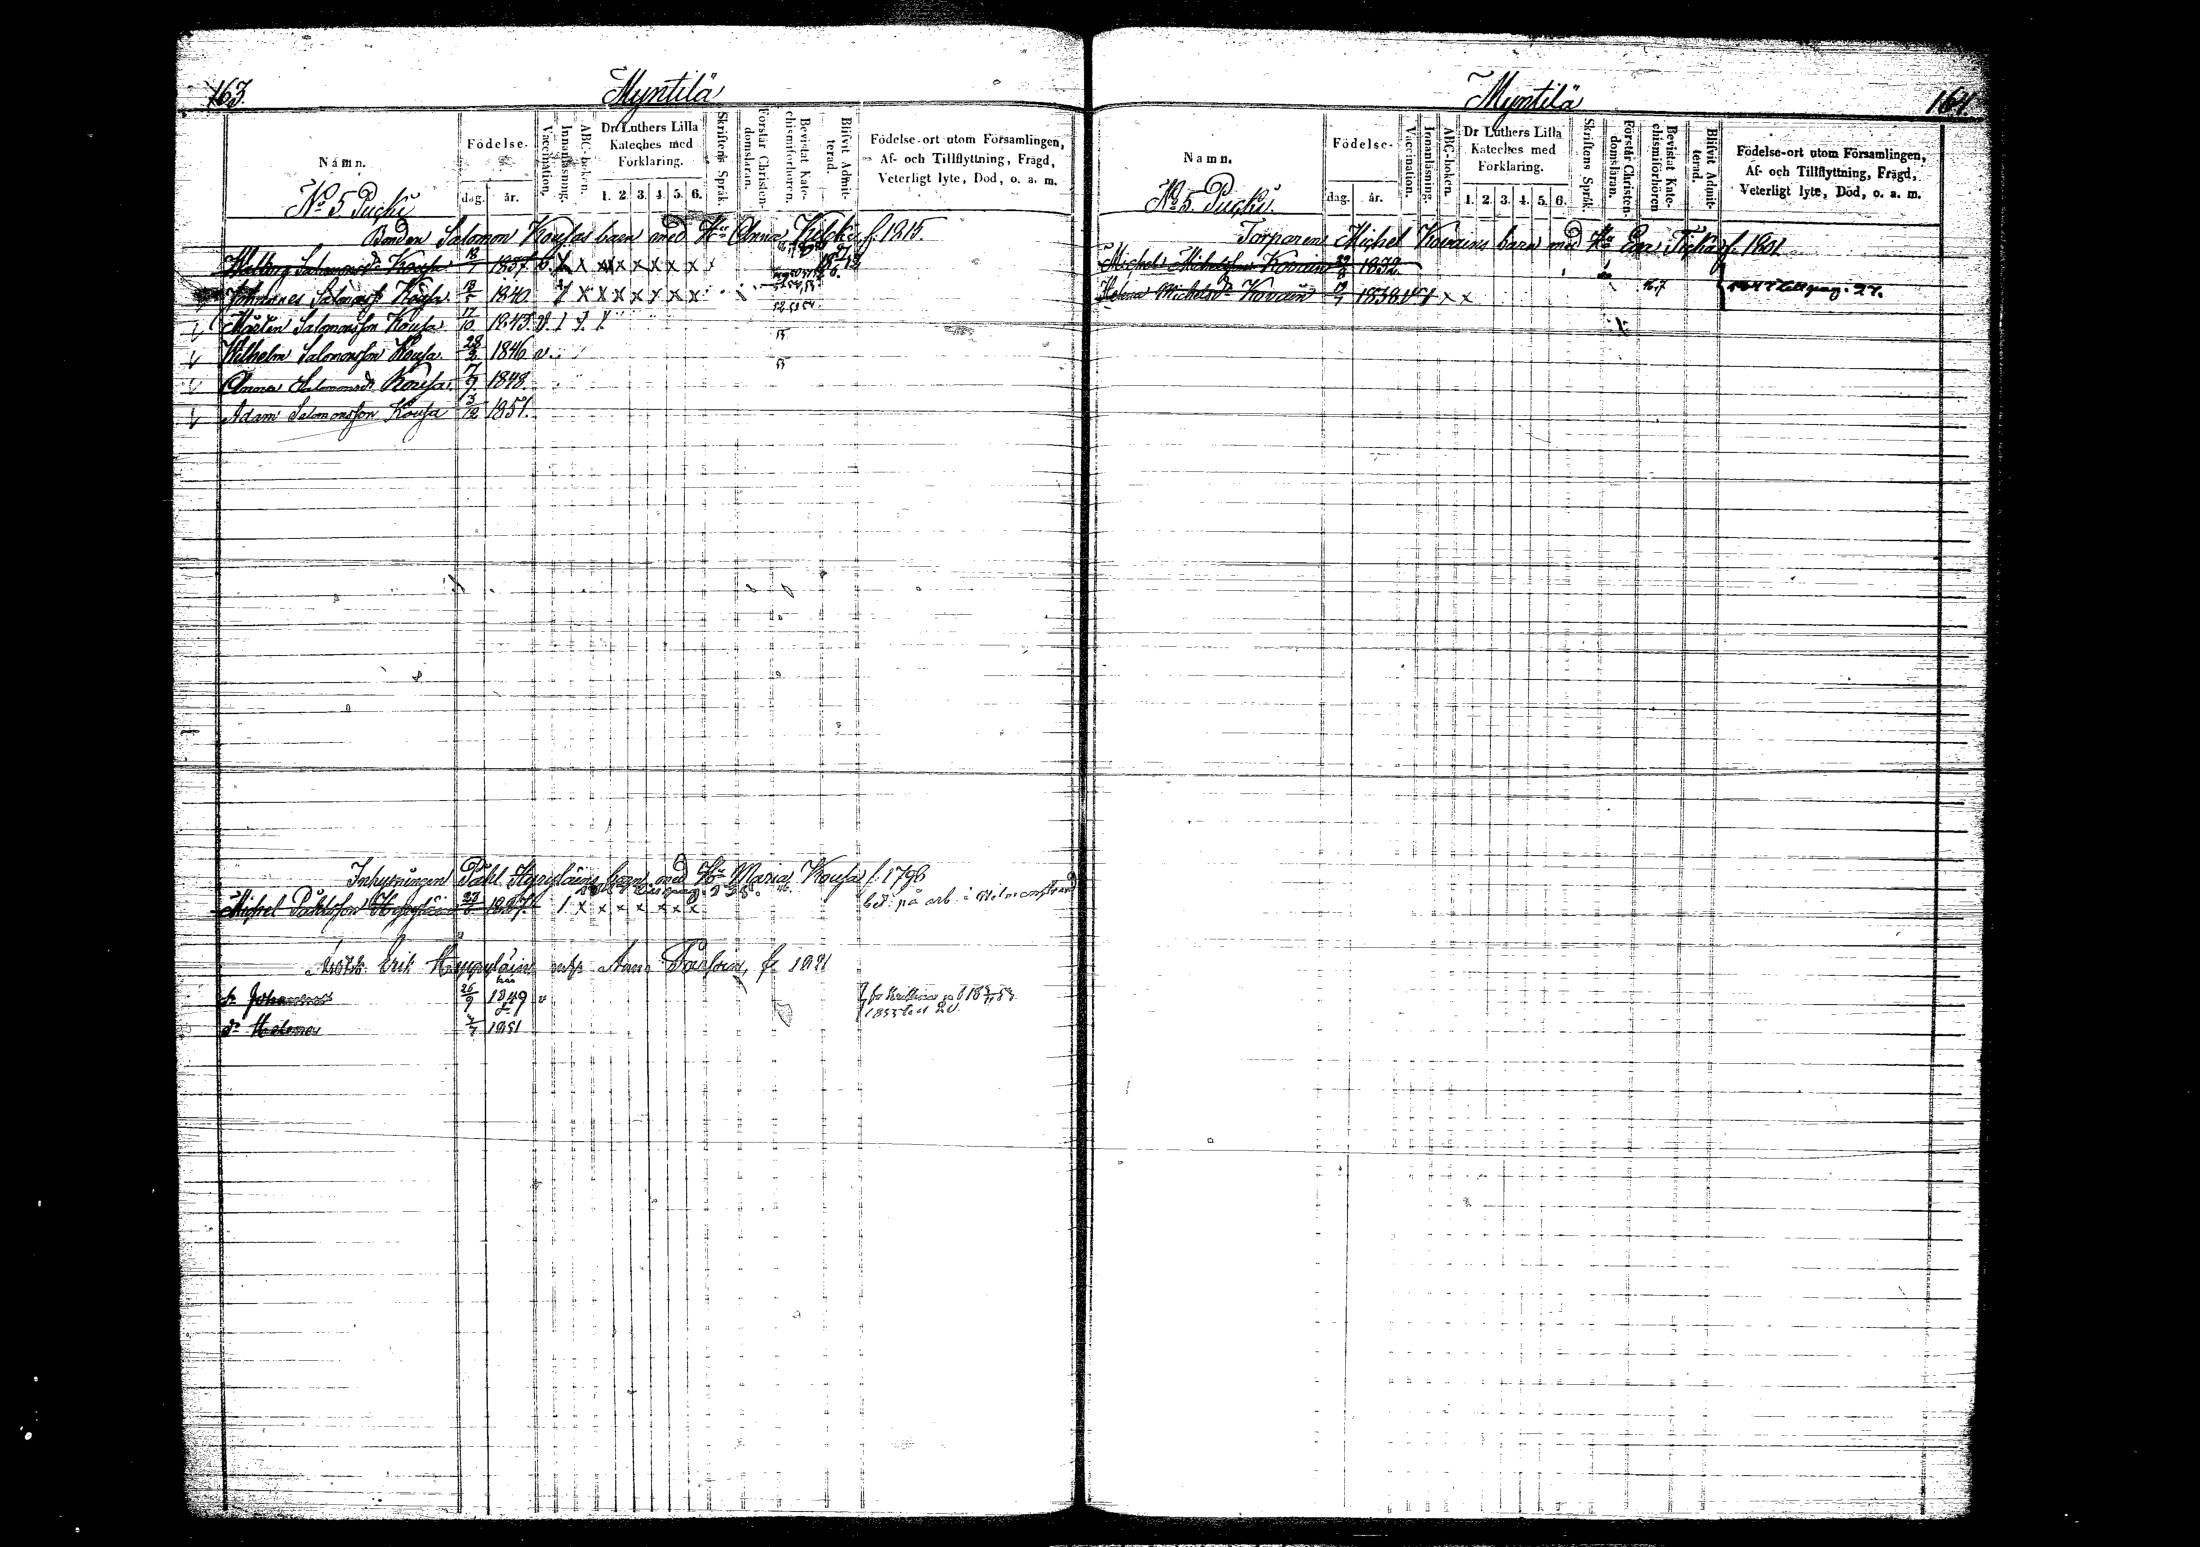 163.
Myntilä
Namn.
Födelse-
dag.
år.
Vaccination.
Innanläsning.
ABC-boken.
Dr Luthers Lilla
Kateches med
Förklaring.
1. 2. 3. 4. 5. 6.
Skriftens Språk.
Förstår Christen-
domsläran.
Bevistat Kate-
chismiförhören.
Blifvit Admit-
terad.
Födelse-ort utom Församlingen,
Af- och Tillflyttning, Frägd,
Veterligt lyte, Död, o. a. m.
No 5 Pucki
Bonden Salomon Kousas barn med Hu Anna f. 1815.
Walborg Salomonsdr Kousa 18/1 1837. v. X X X X X X X X
Johannes Salomonss Kousa 1840 X X X X X X X
Mårten Salomonsson Kousa 17/10 1843. v. 1
Wilhelm Salomonsson Kousa 28/3 1846 v.
Anna Salomonsdr Kousa 7/9 1848.
Adam Salomonsson Kousa 3/12 1851.
Inhysningen Påhl Hyrylains barn med Hu Maria Kousa f. 1796
Michel Påhlsson 1827. 1 x x x x x x x
bet. på arb. i
Erik Anna f. 1821
Sn Johannes 26/9 1849 v
dr Helena 1851
164.
Myntilä
Namn.
Födelse-
dag.
år.
Vaccination.
Innanläsning.
ABC-boken.
Dr Luthers Lilla
Kateches med
Förklaring.
1. 2. 3. 4. 5. 6.
Skriftens Språk.
Förstår Christen-
domsläran.
Bevistat Kate-
chismiförhören
Blifvit Admit-
terad.
Födelse-ort utom Församlingen,
Af- och Tillflyttning, Frägd,
Veterligt lyte, Död, o. a. m.
No 5. Pucki.
Torparen Michel Kovains barn med Hu Eva f. 1801
Michel Michelsson Kovain 1832
Helena Michelsdr Kovain 1838 v 1 x x